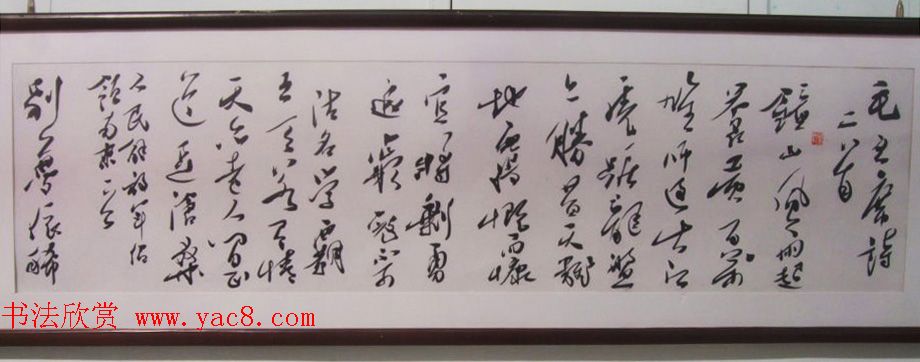 毛主席詩
二首
鍾山風雨起
蒼黃百萬
雄師過大江
虎踞龍盤
今勝昔天翻
地覆慨而慷
宜將剩勇
追窮寇不可
沽名學霸
王天若有情
天亦老人間正
道是滄桑
人民解放軍佔
領南京
別夢依稀
书法欣赏 www.yac8.com